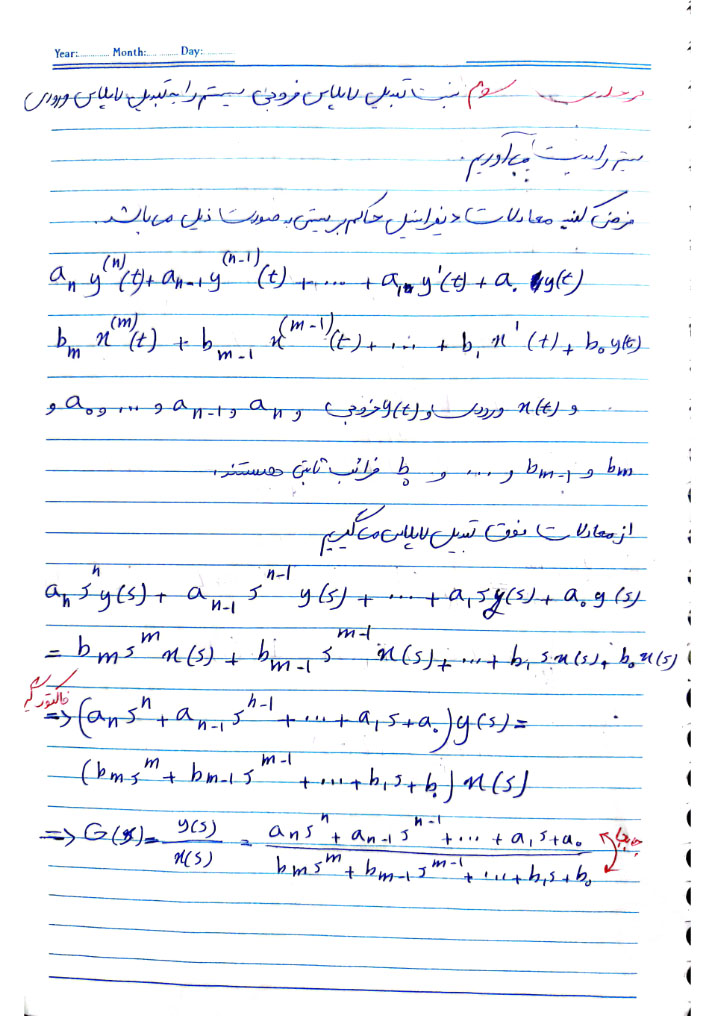 Year: Month: Day:
در مرحله سوم نسبت تبدیل لاپلاس خروجی سیستم را به تبدیل لاپلاس ورودی
سیستم را بدست می‌آوریم.
فرض کنید معادلات دیفرانسیل حاکم بر سیستم به صورت ذیل می‌باشد.
aₙ y⁽ⁿ⁾(t) + aₙ₋₁ y⁽ⁿ⁻¹⁾(t) + ... + a₁ y'(t) + a₀ y(t)
bₘ x⁽ᵐ⁾(t) + bₘ₋₁ x⁽ᵐ⁻¹⁾(t) + ... + b₁ x'(t) + b₀ y(t)
و x(t) ورودی و y(t) خروجی و aₙ و aₙ₋₁ و ... و a₀ و
bₘ و bₘ₋₁ و ... و b₀ ضرائب ثابتی هستند.
از معادلات فوق تبدیل لاپلاس می‌گیریم
aₙ sⁿ y(s) + aₙ₋₁ sⁿ⁻¹ y(s) + ... + a₁ s y(s) + a₀ y(s)
= bₘ sᵐ x(s) + bₘ₋₁ sᵐ⁻¹ x(s) + ... + b₁ s x(s) + b₀ x(s)
فاکتورگیری
=> (aₙ sⁿ + aₙ₋₁ sⁿ⁻¹ + ... + a₁ s + a₀) y(s) =
(bₘ sᵐ + bₘ₋₁ sᵐ⁻¹ + ... + b₁ s + b₀) x(s)
=> G(s) = y(s)/x(s) = (aₙ sⁿ + aₙ₋₁ sⁿ⁻¹ + ... + a₁ s + a₀)/(bₘ sᵐ + bₘ₋₁ sᵐ⁻¹ + ... + b₁ s + b₀)